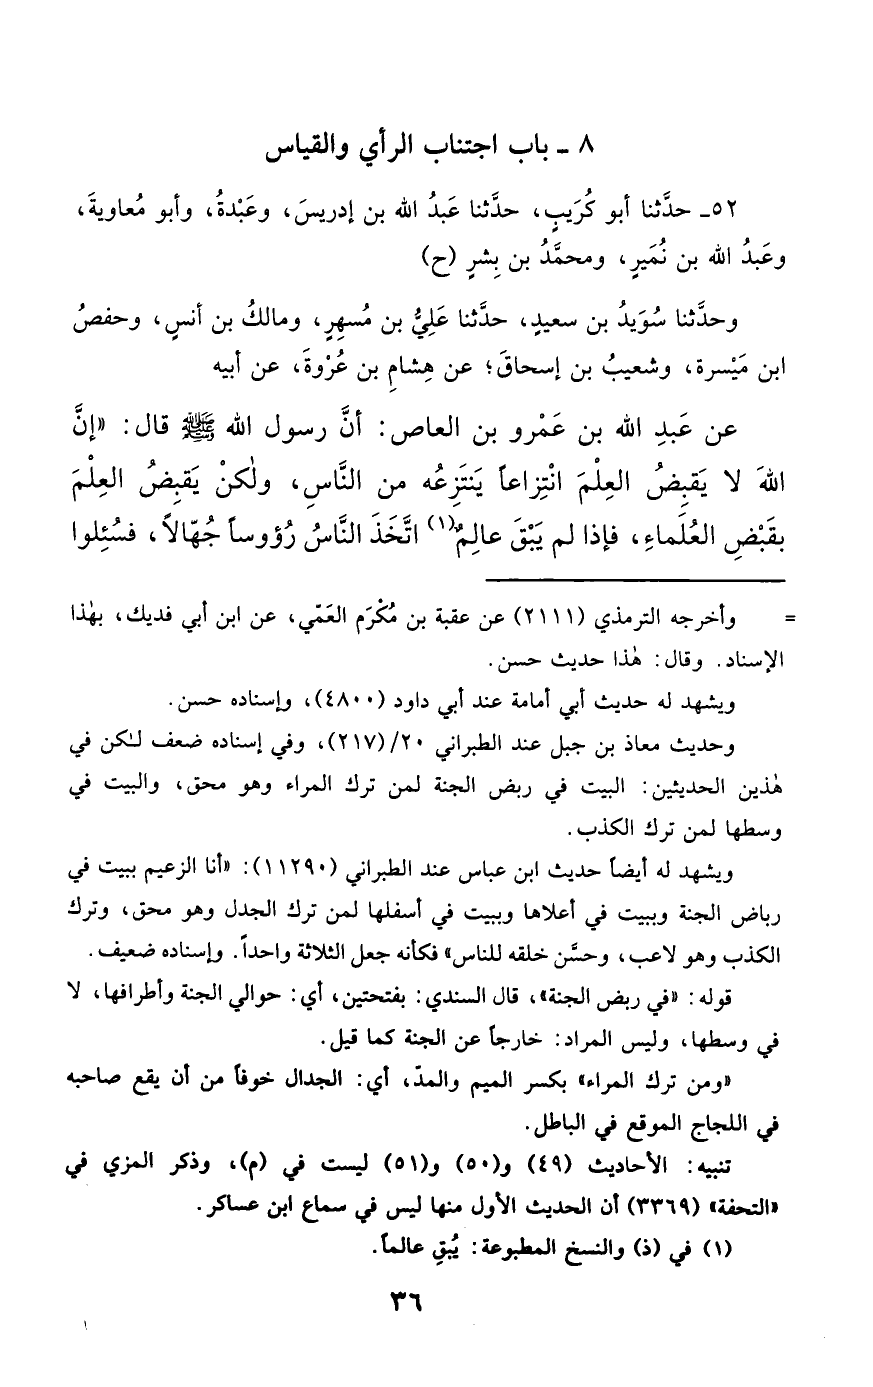 ٨ - باب اجتناب الرأي والقياس
٥٢- حدَّثنا أبو كُرَيبٍ، حدَّثنا عَبدُ الله بن إدريسَ، وعَبْدةُ، وأبو مُعاويةَ،
وعَبدُ الله بن نُمَيرٍ، ومحمَّدُ بن بِشرٍ (ح)
وحدَّثنا سُوَيدُ بن سعيدٍ، حدَّثنا عَلِيُّ بن مُسهِرٍ، ومالكُ بن أنسٍ، وحفصُ
ابن مَيْسرة، وشعيبُ بن إسحاقَ؛ عن هِشامِ بن عُرْوةَ، عن أبيه
عن عَبدِ الله بن عَمْرو بن العاص: أنَّ رسول الله ﷺ قال: «إنَّ
اللهَ لا يَقبِضُ العِلْمَ انْتِزاعاً يَنتَزِعُه من النَّاسِ، ولٰكنْ يَقبِضُ العِلْمَ
بقَبْضِ العُلَماءِ، فإذا لم يَبْقَ عالِمٌ(١) اتَّخَذَ النَّاسُ رُؤوساً جُهّالاً، فسُئِلوا
= وأخرجه الترمذي (٢١١١) عن عقبة بن مُكْرَم العَمّي، عن ابن أبي فديك، بهٰذا
الإسناد. وقال: هٰذا حديث حسن.
ويشهد له حديث أبي أمامة عند أبي داود (٤٨٠٠)، وإسناده حسن.
وحديث معاذ بن جبل عند الطبراني ٢٠/(٢١٧)، وفي إسناده ضعف لٰكن في
هٰذين الحديثين: البيت في ربض الجنة لمن ترك المراء وهو محق، والبيت في
وسطها لمن ترك الكذب.
ويشهد له أيضاً حديث ابن عباس عند الطبراني (١١٢٩٠): «أنا الزعيم ببيت في
رباض الجنة وببيت في أعلاها وببيت في أسفلها لمن ترك الجدل وهو محق، وترك
الكذب وهو لاعب، وحسَّن خلقه للناس» فكأنه جعل الثلاثة واحداً. وإسناده ضعيف.
قوله: «في ربض الجنة»، قال السندي: بفتحتين، أي: حوالي الجنة وأطرافها، لا
في وسطها، وليس المراد: خارجاً عن الجنة كما قيل.
«ومن ترك المراء» بكسر الميم والمدّ، أي: الجدال خوفاً من أن يقع صاحبه
في اللجاج الموقع في الباطل.
تنبيه: الأحاديث (٤٩) و(٥٠) و(٥١) ليست في (م)، وذكر المزي في
«التحفة» (٣٣٦٩) أن الحديث الأول منها ليس في سماع ابن عساكر.
(١) في (ذ) والنسخ المطبوعة: يُبقِ عالماً.
٣٦
١